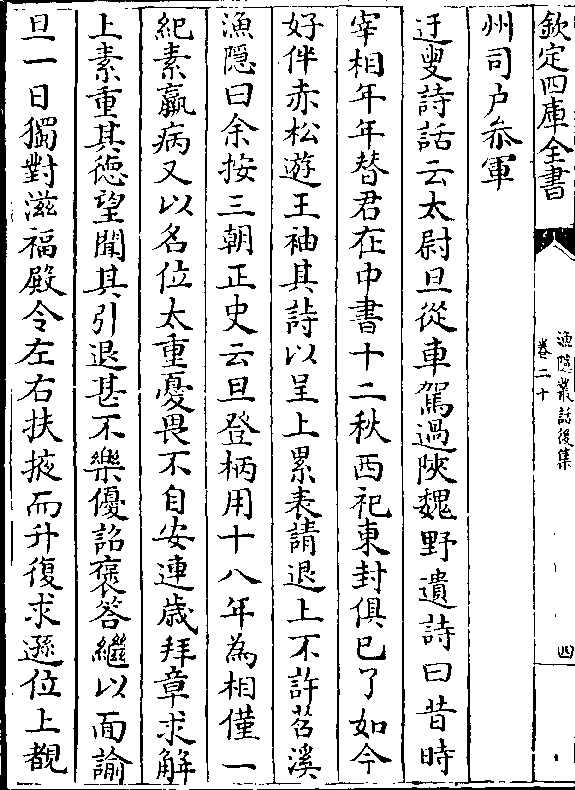 欽定四庫全書
漁隱叢話後集
卷二十
四
州司户叅軍
迂叟詩話云太尉旦從車駕過陜魏野遺詩曰昔時
宰相年年替君在中書十二秋西祀東封俱已了如今
好伴赤松遊王袖其詩以呈上累表請退上不許苕溪
漁隱曰余按三朝正史云旦登柄用十八年為相僅一
紀素羸病又以名位太重憂畏不自安連歲拜章求解
上素重其徳望聞其引退甚不樂優詔褒答繼以面諭
旦一日獨對滋福殿令左右扶掖而升復求遜位上覩